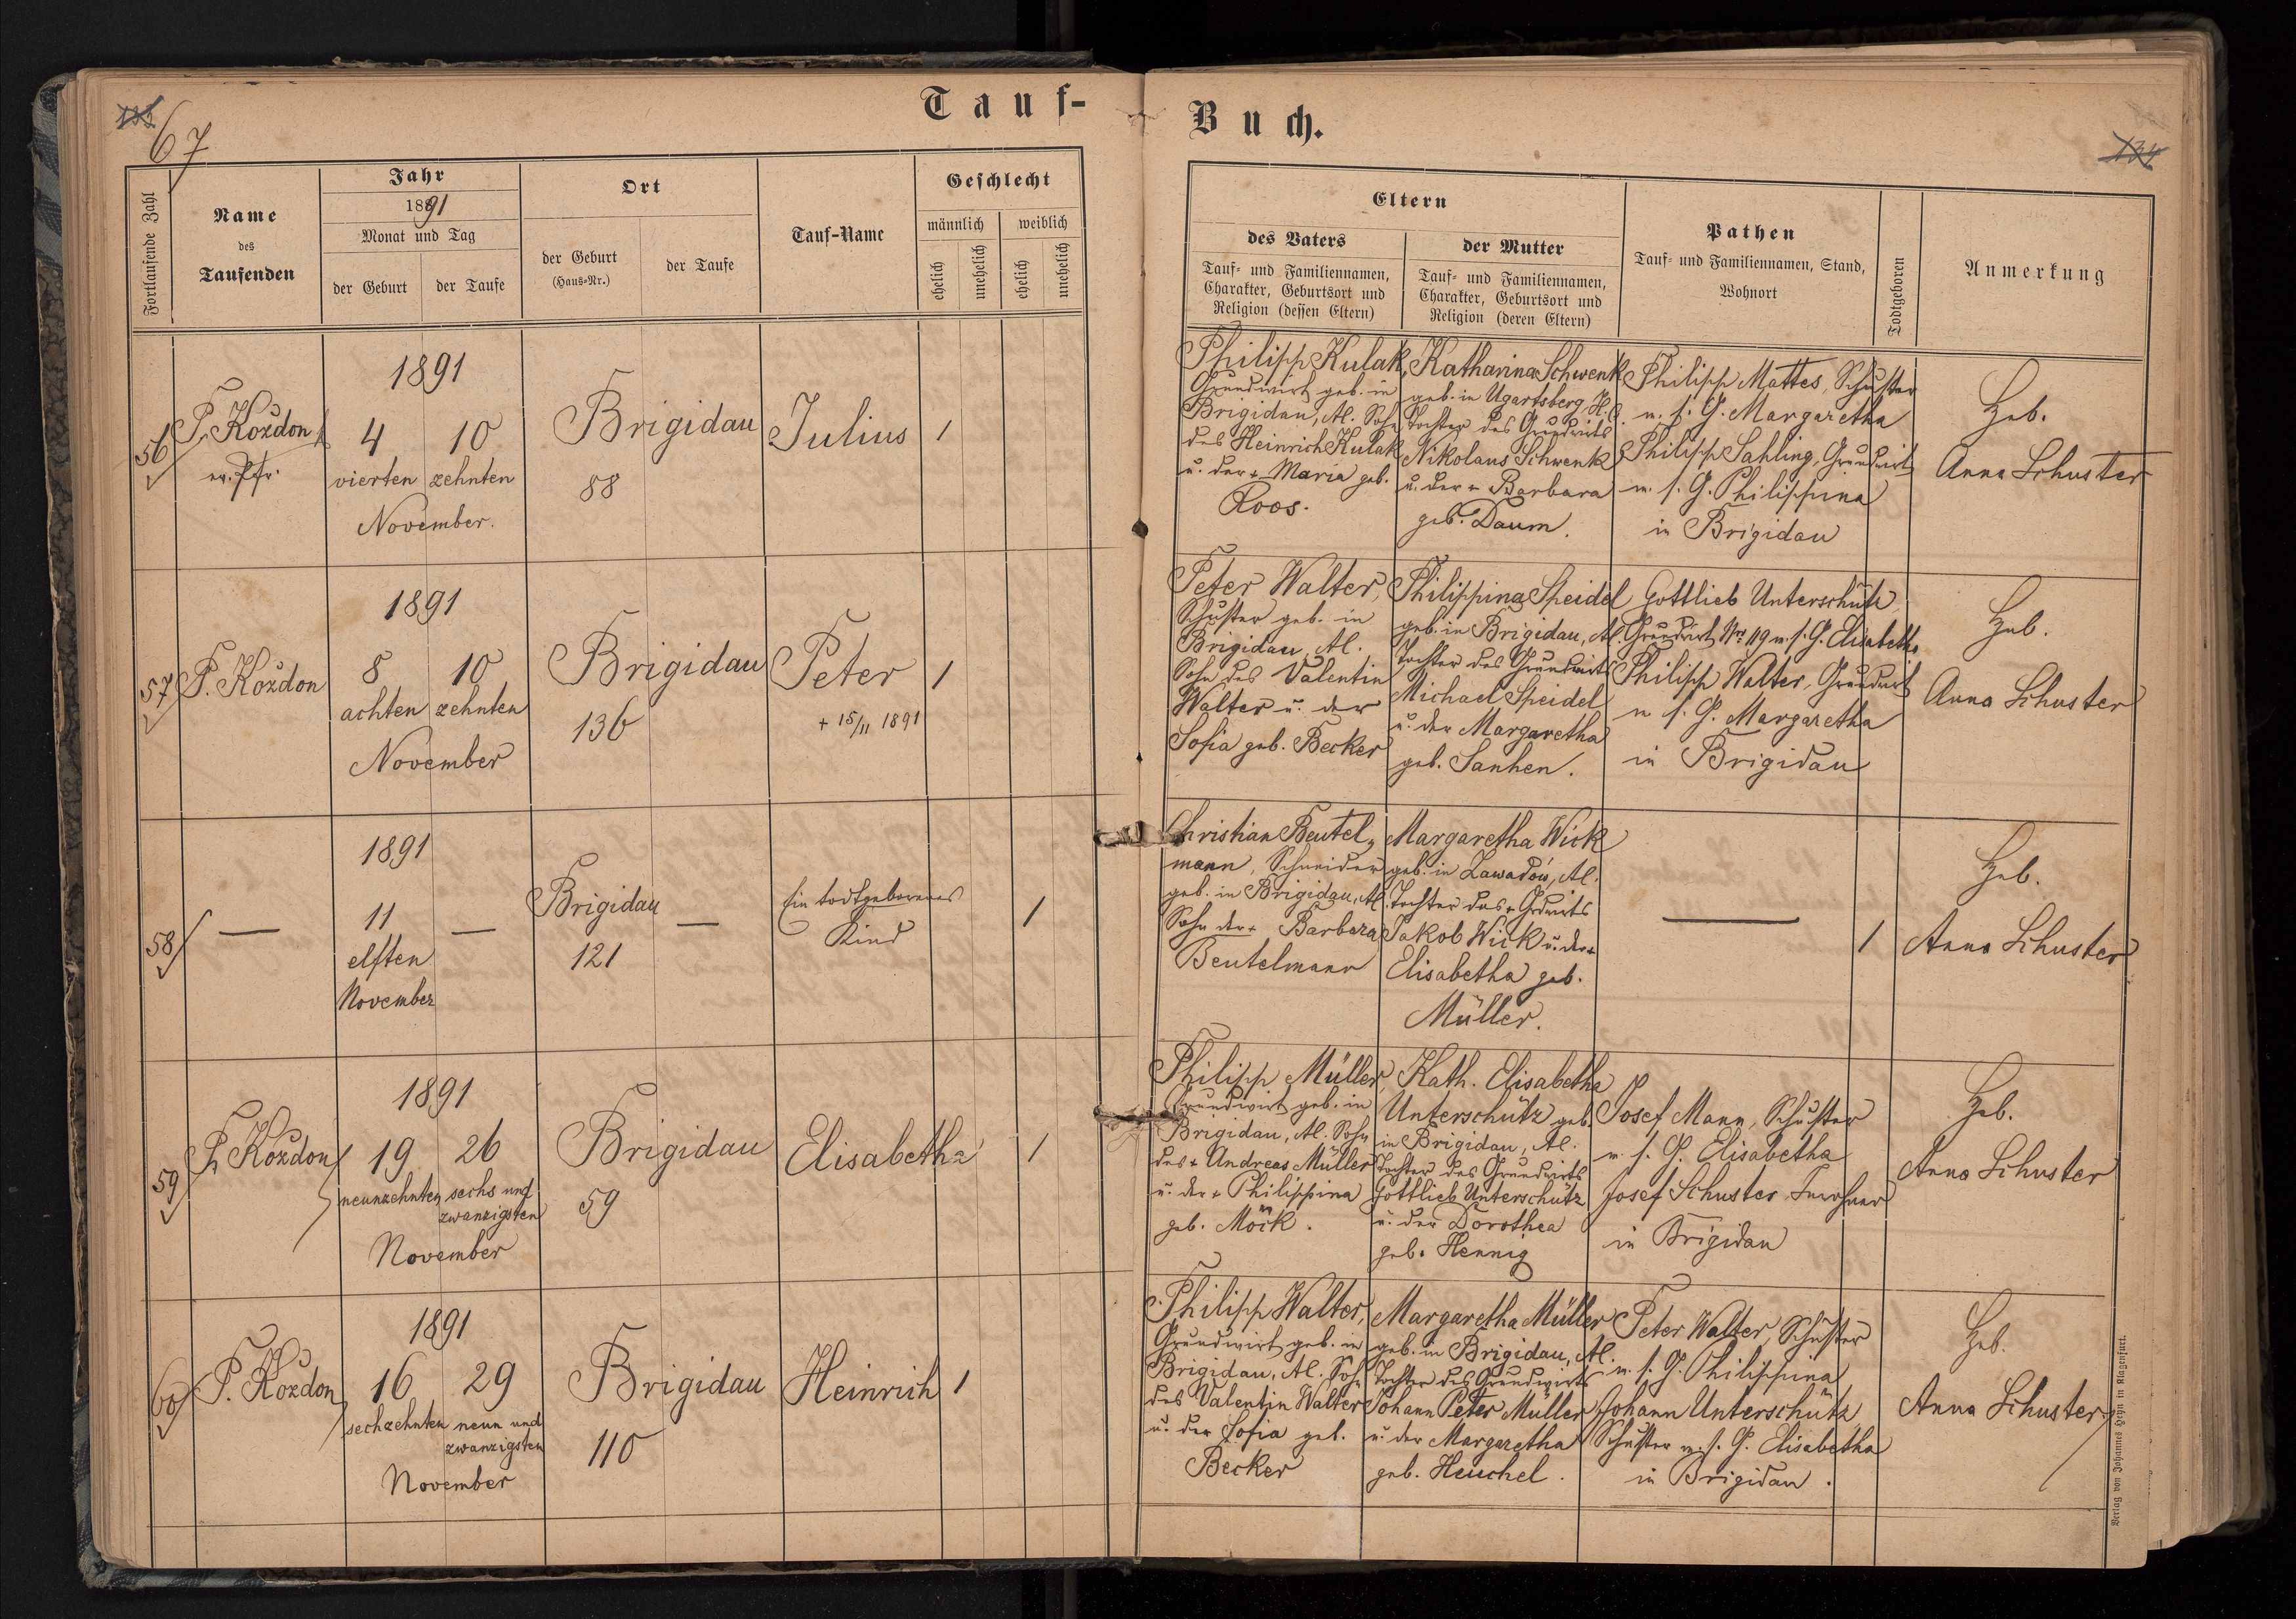 67
Tauf-
Buch.
Fortlaufende Zahl
Name
des
Taufenden
Jahr
1891
Monat und Tag
der Geburt
der Taufe
Ort
der Geburt
(Haus-Nr.)
der Taufe
Tauf-Name
Geschlecht
männlich
weiblich
ehelich
unehelich
ehelich
unehelich
Eltern
des Vaters
Tauf- und Familiennamen,
Charakter, Geburtsort und
Religion (dessen Eltern)
der Mutter
Tauf- und Familiennamen,
Charakter, Geburtsort und
Religion (deren Eltern)
Pathen
Tauf- und Familiennamen, Stand,
Wohnort
Todtgeboren
Anmerkung
56
P. Kozdon
ev. Pfr.
1891
4
vierten
10
zehnten
November.
Brigidau
88
Julius
1
Philipp Kulak,
Grundwirt geb. in
Brigidau, Al. Sohn
des Heinrich Kulak
u. der + Maria geb.
Roos.
Katharina Schwenk
geb. in Ugartsberg H. C.
Tochter des Grundwirts
Nikolaus Schwenk
u. der + Barbara
geb. Daum.
Philipp Mattes, Schuster
u. s. G. Margaretha
Philipp Sahling, Grundwirt
u. s. G. Philippina
in Brigidau
Heb.
Anna Schuster
57
P. Kozdon
1891
8
achten
10
zehnten
November
Brigidau
136
Peter
+ 15/11 1891
1
Peter Walter,
Schuster geb. in
Brigidau, Al.
Sohn des Valentin
Walter u. der
Sofia geb. Becker
Philippina Speidel
geb. in Brigidau, Al.
Tochter des Grundwirts
Michael Speidel
u. der Margaretha
geb. Sanhen.
Gottlieb Unterschütz
Grundwirt Nr. 119 u. s. G. Elisabetha
Philipp Walter, Grundwirt
u. s. G. Margaretha
in Brigidau
Heb.
Anna Schuster
58
—
1891
11
elften
November
—
Brigidau
121
—
Ein todtgeborenes
Kind
1
Christian Beutel-
mann, Schneider
geb. in Brigidau, Al.
Sohn der + Barbara
Beutelmann
Margaretha Wick
geb. in Zawadów, Al.
Tochter des + Grdwirts
Jakob Wick u. der +
Elisabetha geb.
Müller.
—
1
Heb.
Anna Schuster
59
P. Kozdon
1891
19
neunzehnten
26
sechs und
zwanzigsten
November
Brigidau
59
Elisabetha
1
Philipp Müller
Grundwirt geb. in
Brigidau, Al. Sohn
des + Andreas Müller
u. der + Philippina
geb. Möck.
Kath. Elisabetha
Unterschütz geb.
in Brigidau, Al.
Tochter des Grundwirts
Gottlieb Unterschütz
u. der Dorothea
geb. Hennig
Josef Mann, Schuster
u. s. G. Elisabetha
Josef Schuster,
in Brigidau
Heb.
Anna Schuster
60
P. Kozdon
1891
16
sechzehnten
29
neun und
zwanzigsten
November
Brigidau
110
Heinrich
1
Philipp Walter,
Grundwirt geb. in
Brigidau, Al. Sohn
des Valentin Walter
u. der Sofia geb.
Becker
Margaretha Müller
geb. in Brigidau, Al.
Tochter des Grundwirts
Johann Peter Müller
u. der Margaretha
geb. Heuchel.
Peter Walter, Schuster
u. s. G. Philippina
Johann Unterschütz
Schuster u. s. G. Elisabetha
in Brigidau.
Heb.
Anna Schuster
Verlag von Johannes Heyn in Klagenfurt.